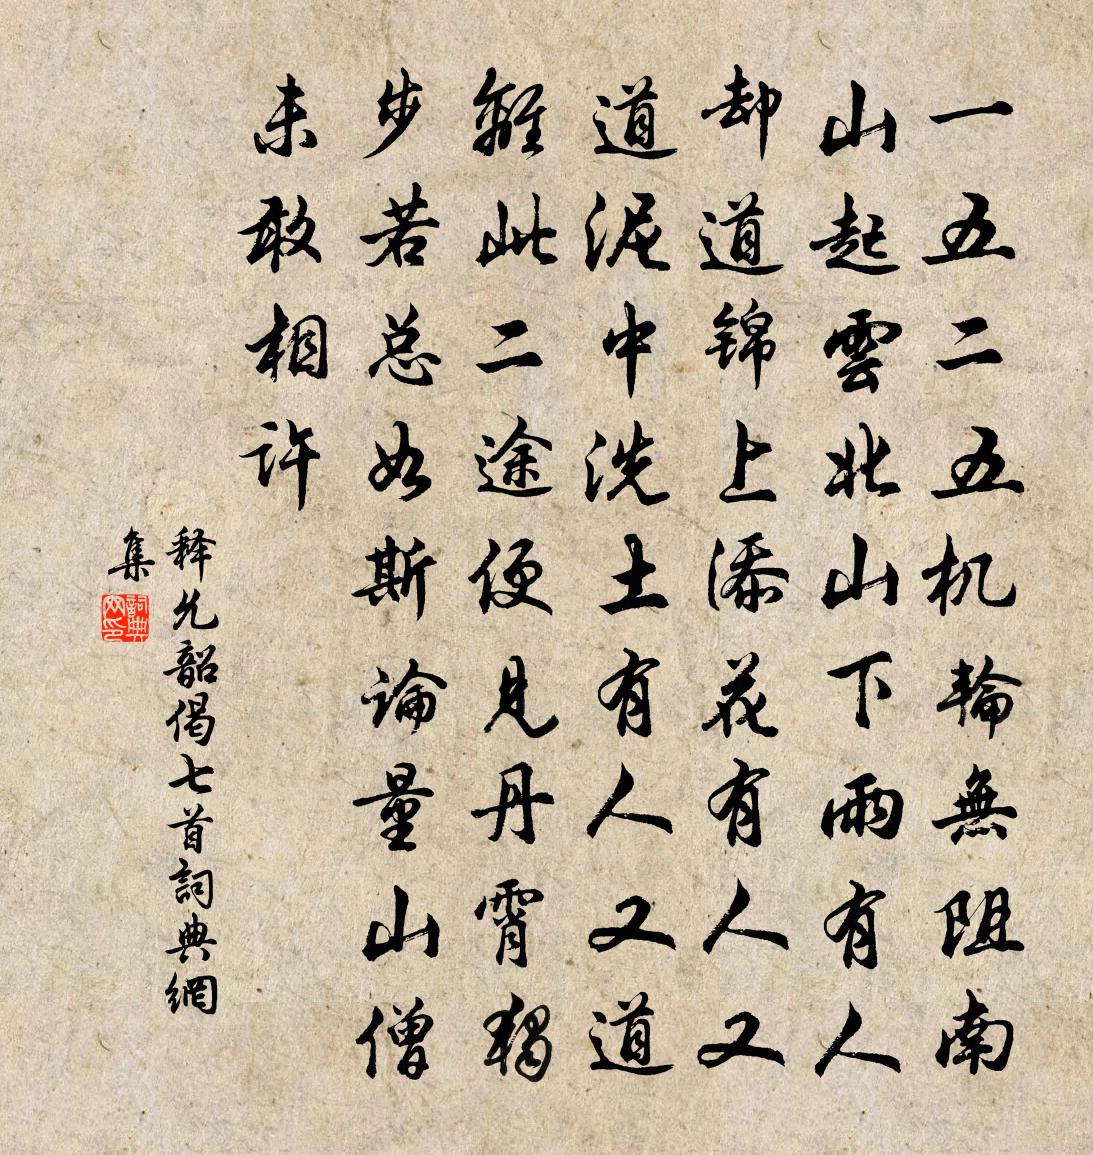 一五二五机輪無阻南
山起雲北山下雨有人
却道锦上添花有人又
道泥中洗土有人又道
離此二途便見丹霄獨
步若总如斯論量山僧
未敢相许
释允韶偈七首詞典網
集
詞典網印